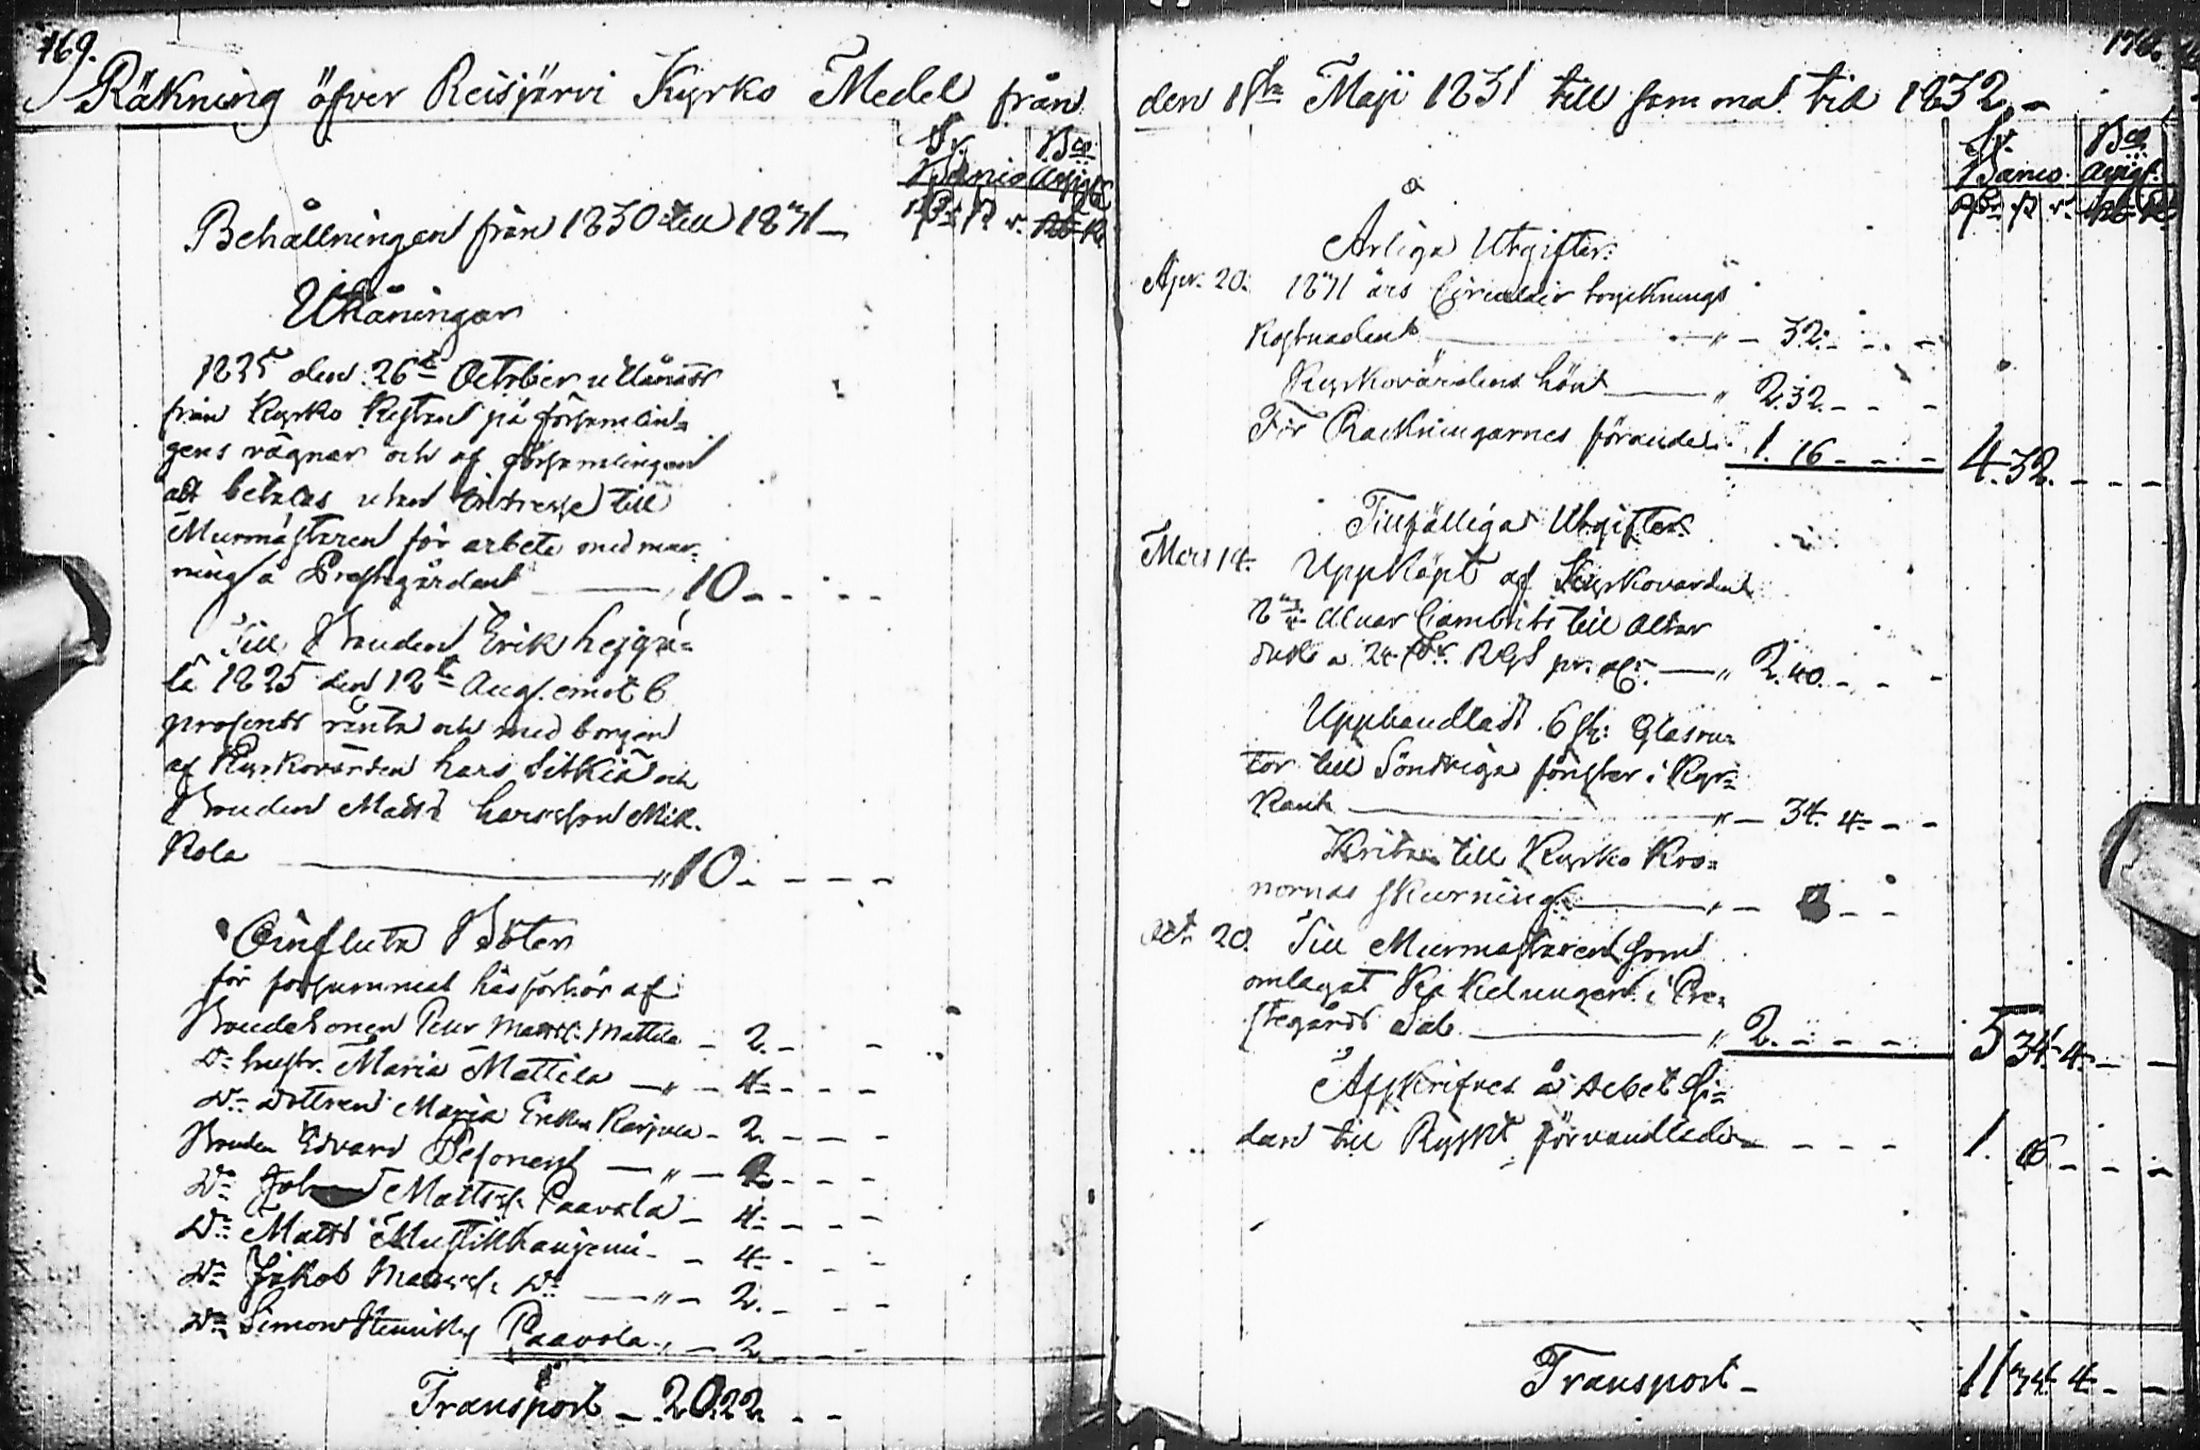 169.
Räkning öfver Reisjärvi Kyrko Medel från
Sv. Banco
Bco Assigt.
Rd. sk. r. Rb. K.
Behållningen från 1830 till 1831 —
Utlåningar
1825 den 26te October utlånadt
från Kyrko Kistan på församlin=
gens vägnar och af församlingen
att betalas utan Intresse till
Murmästaren för arbete med mur=
ning å Prestgården — 10 - - - -
Till Bonden Erik Lejga=
la 1825 den 12te Aug. emot 6
prosents ränta och med borgen
af Kyrkovärden Lars Sitkiä och
Bonden Matts Larsson Mik=
kola — " 10 - - - -
Influtna Böter
för försummat läsförhör af
Bondesonen Petter Mattss: Mattila - 2. - -
Do hustr. Maria Mattila — " - 4. - - -
Do dottren Maria Ersdr Karjula - 2. - - -
Bonden Edvard Pesonen — " - 2 - - -
Do Johan Mattss. Paavola - 4. - - -
Do Matts Mustikkaniemi - - 4. - - -
Do Jakob Mattss. Do — " - 2. - - -
Do Simon Henrikss Paavola " - 2. - - -
Transport - 20.22. - -
170.
den 1sta Maji 1831 till samma tid 1832. -
Sv. Banco
Bco Assigt.
Rd. sk. r. Rb. K.
Årliga Utgifter.
Apr. 20. 1831 års Circulair tryknings
Kostnaden — " - 32. - - -
Kyrkovärdens lön — " 2.32. - - -
För Räkningarnes förande 1. 16 - - - 4.32. - - -
Tillfälliga Utgifter.
Mars 14. Uppköpt af Kyrkovärden
alnar Cambrits till Altar
duk a 24 sk. RGs pr. al. — " 2.40. - - -
Upphandladt 6 st. Glasru=
tor till Söndriga fönster i Kyr=
kan — " - 34. 4. - -
Krita till Kyrko Kro=
nornas skurning — " - 8 - -
Oct. 20. Till Murmästaren som
omlagat Kakelungen i Pre=
stegårds Sal — " 2. - - - 5 34. 4. - -
Afskrifves å Debet Si=
dan till Ryskt förvandlade - - - - 1. 16. - - -
Transport - 11 34. 4. - -